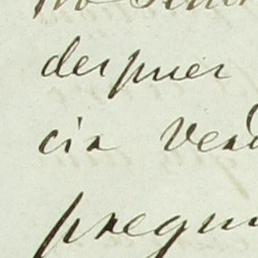 despues
cia verd
pregun